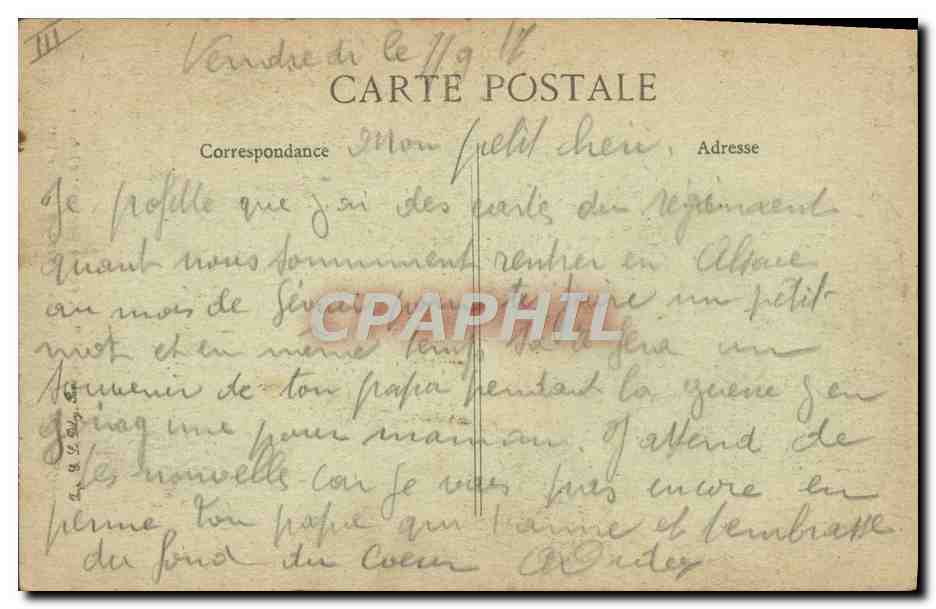 III
Vendredi le 11 9 17
CARTE POSTALE
Correspondance Mon petit cheri. Adresse
Je profitte que j'ai des cartes du régiment
quant nous sommment rentrer en Alsace
au mois de février pour te faire un petit
mot et en même temps sa te fera un
souvenir de ton papa pendant la guerre j'en
une pour maman. J'attend de
tes nouvelle car je vais pas encore en
perme ton papa qui t'aime et t'embrasse
du fond du coeur
CPAPHIL